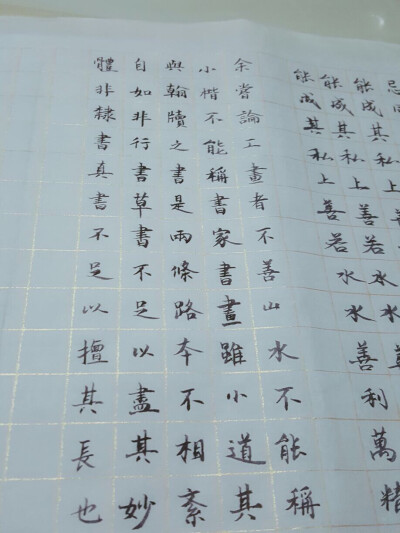 忌
能成其私上善
能成其私上善若水水
能成其私上善若水水善利萬精
余嘗論工畫者不善山水不能稱
小楷不能稱書家書畫雖小道其
與翰牘之書是兩條路本不相紊
自如非行書草書不足以盡其妙
體非隸書真書不足以擅其長也